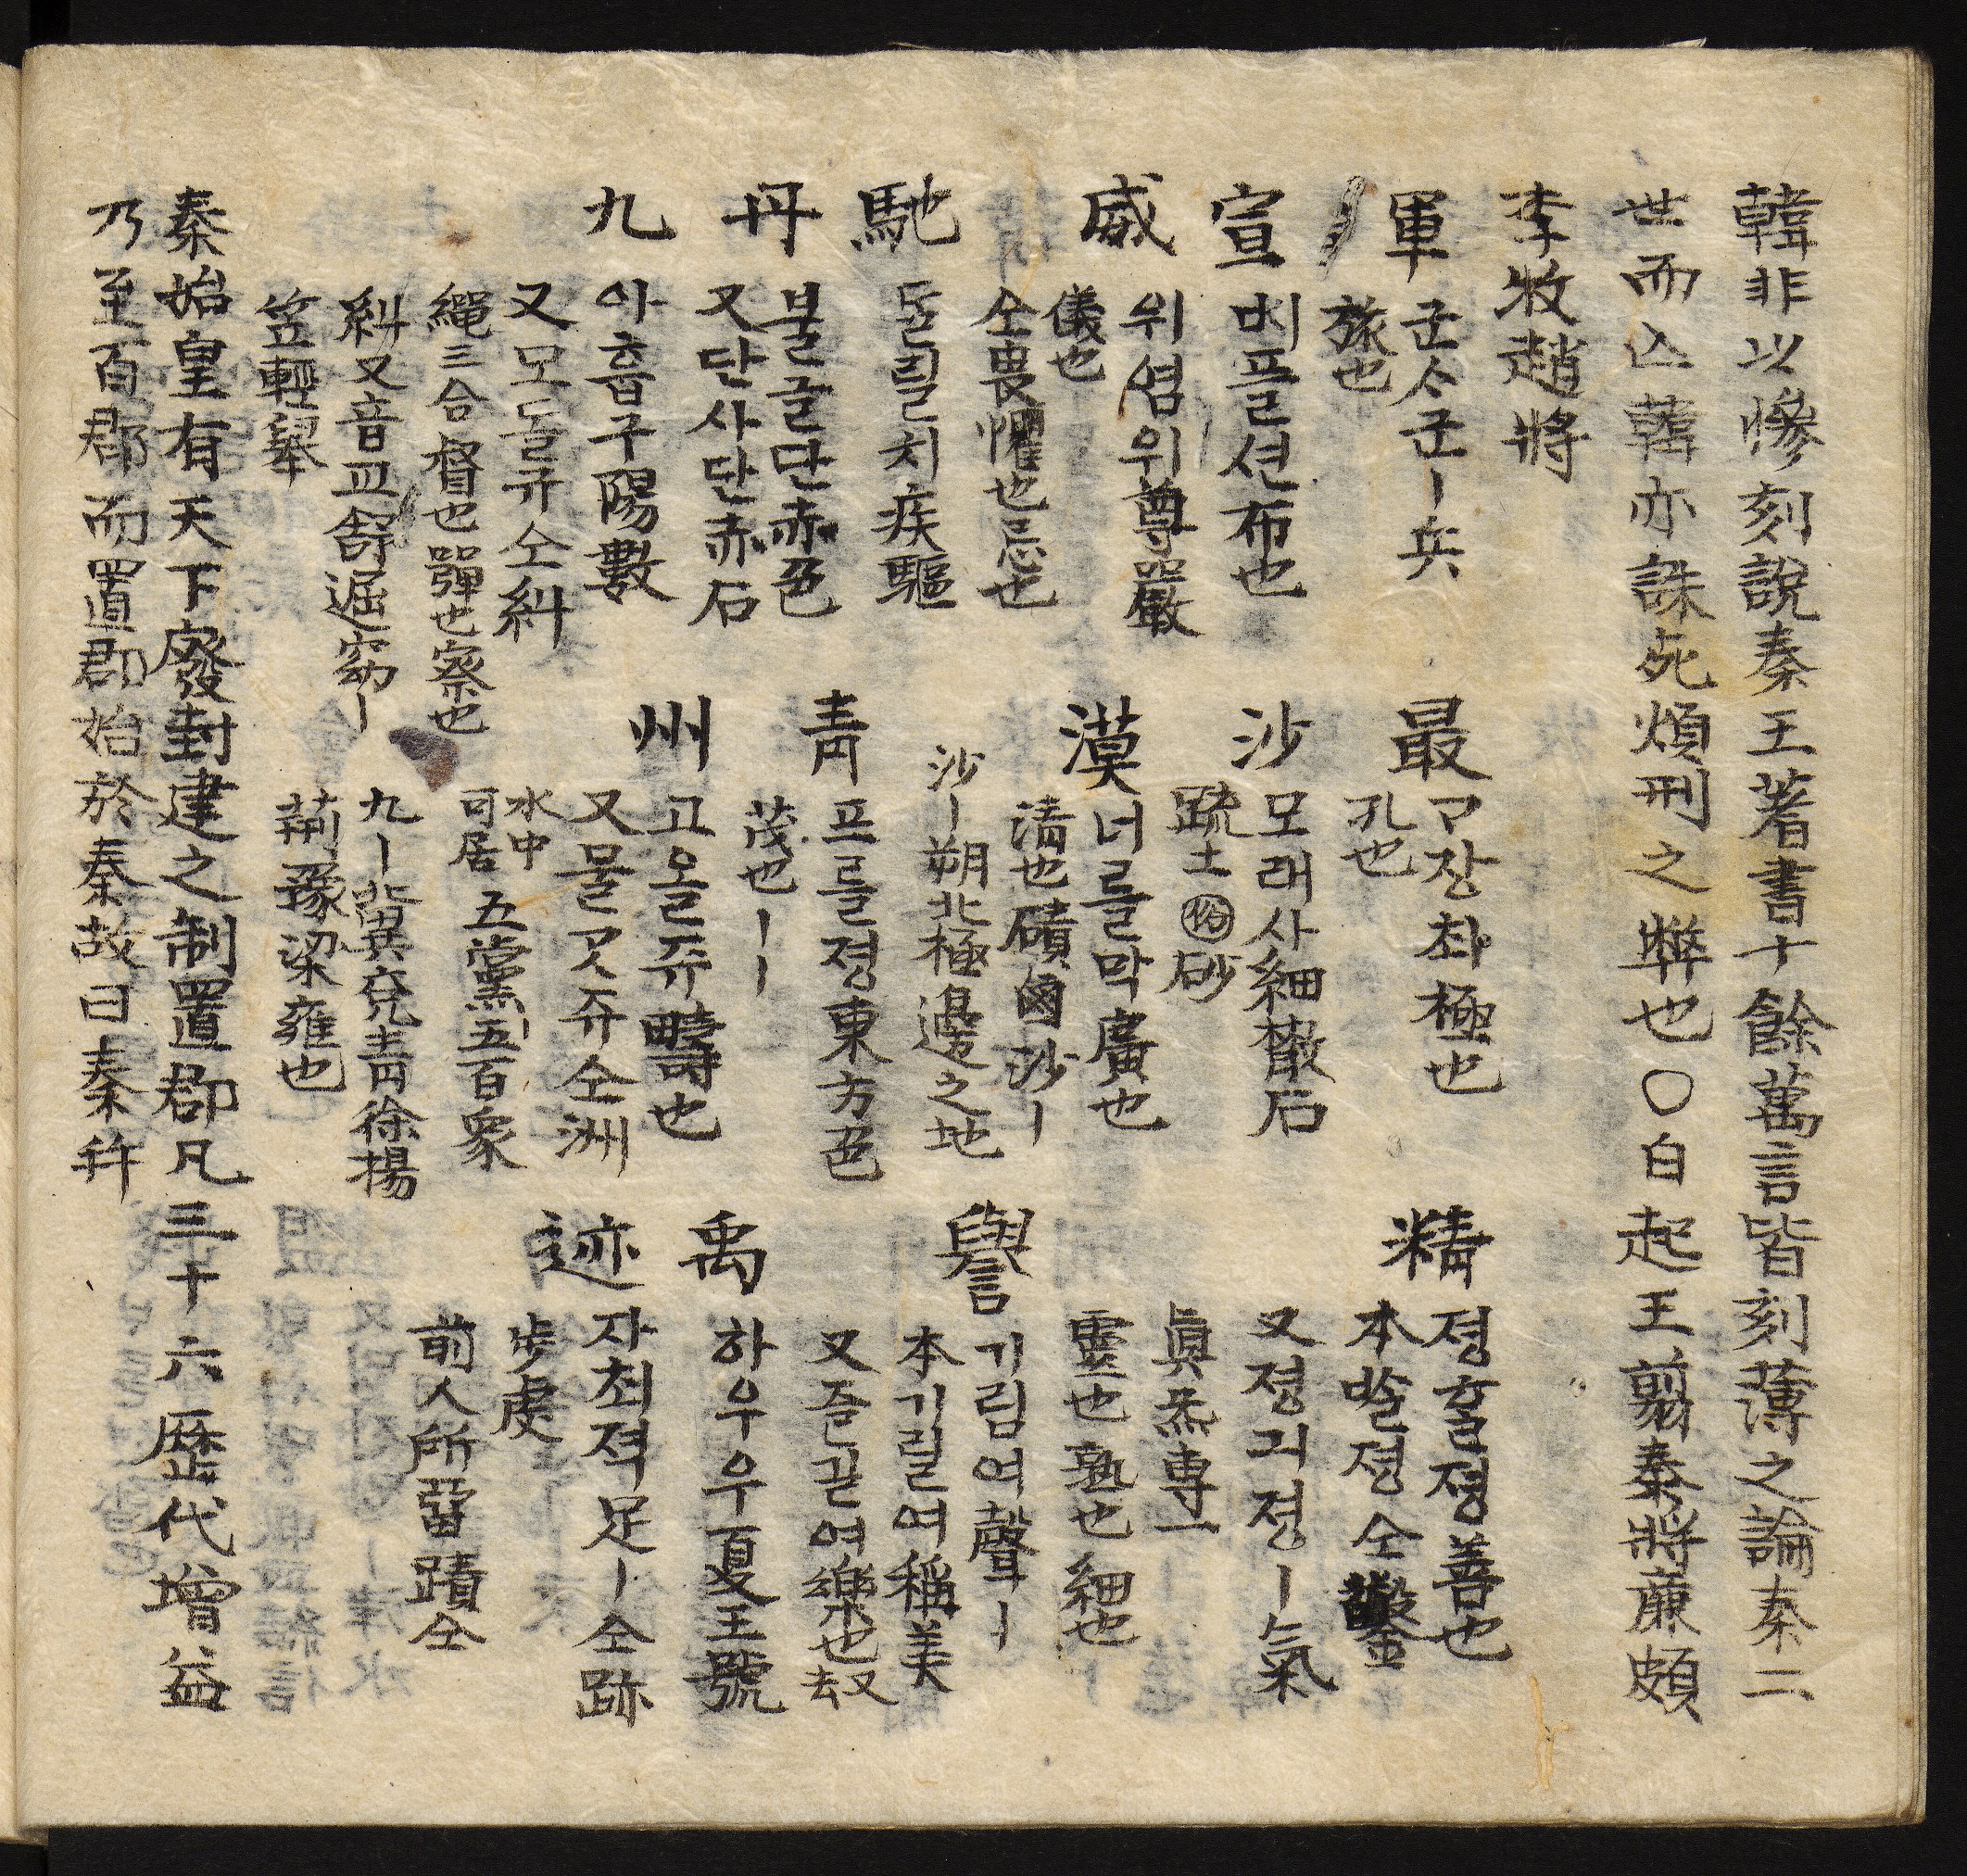 韓非以慘刻說秦王著書十餘萬言皆刻薄之論秦二
世而亾韓亦誅死煩刑之弊也〇白起王翦秦將廉頗
李牧趙將
軍
군ᄉᆞ군ㅣ兵
旅也
最
ᄀᆞ장최極也
孔也
精
졍ᄒᆞᆯ졍善也
本ᄡᅳᆯ졍仝鑿
又졍긔졍ㅣ氣
眞炁專一
靈也熟也細也
宣
베플션布也
沙
모래사細散石
䟽土俗砂
威
위염위尊嚴
儀也
仝畏懼也忌也
漠
너를막廣也
淸也磧鹵沙ㅣ
沙ㅣ朔北極邊之地
譽
기림여聲ㅣ
本기릴여稱美
又즐길여樂也去又
馳
ᄃᆞᆯ릴치疾驅
靑
프를쳥東方色
茂也ㅣㅣ
禹
하우우夏王號
丹
블글단赤色
又단사단赤石
州
고올쥬疇也
又믈ᄀᆞᆺ쥬仝洲
水中
可居
五黨五百衆
九ㅣ冀兗靑徐揚
荊豫梁雍也
迹
자최젹足ㅣ仝跡
步處
前人所畱蹟仝
九
아홉구陽數
又모돌규仝糾
繩三合督也彈也察也
糾又音皿舒遲窈ㅣ
笠輕擧
秦始皇有天下廢封建之制置郡凡三十六歷代增益
乃至百郡而置郡始於秦故曰秦幷